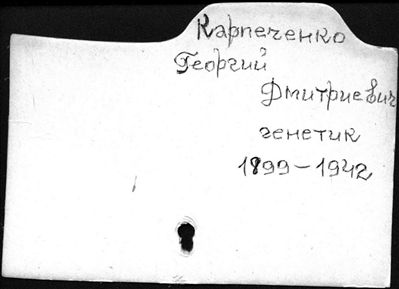 Карпеченко
Георгий
Дмитриевич
генетик
1899-1942